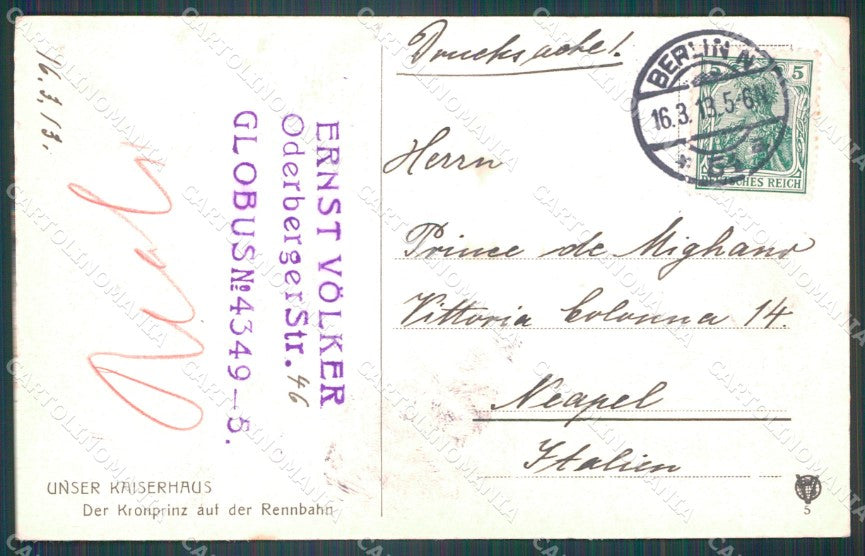 16.3.13.
ERNST VÖLKER
Oderberger Str. 46
GLOBUS No 4349-5.
UNSER KAISERHAUS
Der Kronprinz auf der Rennbahn
Drucksache!
BERLIN N.
16.3.13.5-6N.
* 54 a
5 5
DEUTSCHES REICH
Herrn
Prince de Mighano
Vittoria Colonna 14.
Neapel
Italien
5
CARTOLINOMANIA